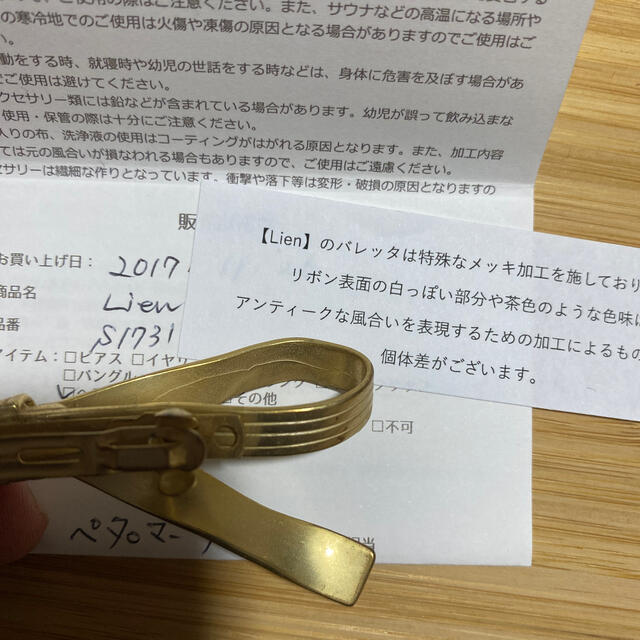 、ご使用の際はご注意ください。また、サウナなどの高温になる場所や
の寒冷地でのご使用は火傷や凍傷の原因となる場合がありますのでご使用はご
い。
動をする時、就寝時や幼児の世話をする時などは、身体に危害を及ぼす場合があ
でご使用は避けてください。
クセサリー類には鉛などが含まれている場合があります。幼児が誤って飲み込まな
使用・保管の際は十分にご注意ください。
入りの布、洗浄液の使用はコーティングがはがれる原因となります。また、加工内容
ては元の風合いが損なわれる場合もありますので、ご使用はご遠慮ください。
セサリーは繊細な作りとなっています。衝撃や落下等は変形・破損の原因となりますの
販
お買い上げ日： 2017
商品名 Lien
品番 S1731
アイテム：□ピアス □イヤリ
□バングル
その他
□不可
ペタロマー
担当
【Lien】のバレッタは特殊なメッキ加工を施しており
リボン表面の白っぽい部分や茶色のような色味は
アンティークな風合いを表現するための加工によるもの
個体差がございます。